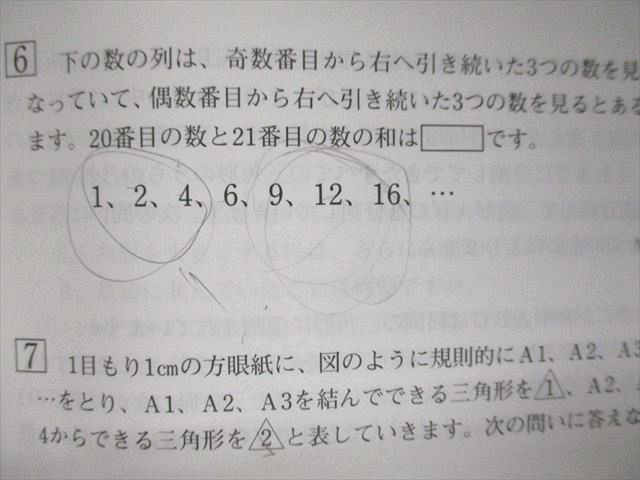 6 下の数の列は、奇数番目から右へ引き続いた3つの数を見
なっていて、偶数番目から右へ引き続いた3つの数を見るとある
ます。20番目の数と21番目の数の和は□です。
1、2、4、6、9、12、16、…
7 1目もり1cmの方眼紙に、図のように規則的にA1、A2、A3
…をとり、A1、A2、A3を結んでできる三角形を1、A2、
4からできる三角形を2と表していきます。次の問いに答えな